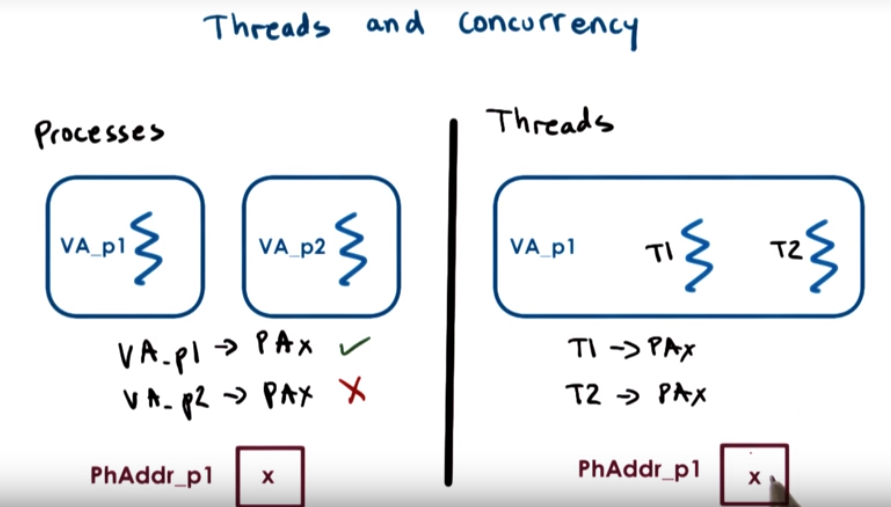 Threads and Concurrency
Processes
VA_p1
VA_p2
VA_p1 → PAx ✓
VA_p2 → PAX X
PhAddr_p1
x
Threads
VA_p1
T1
T2
T1 → PAx
T2 → PAx
PhAddr_p1
x